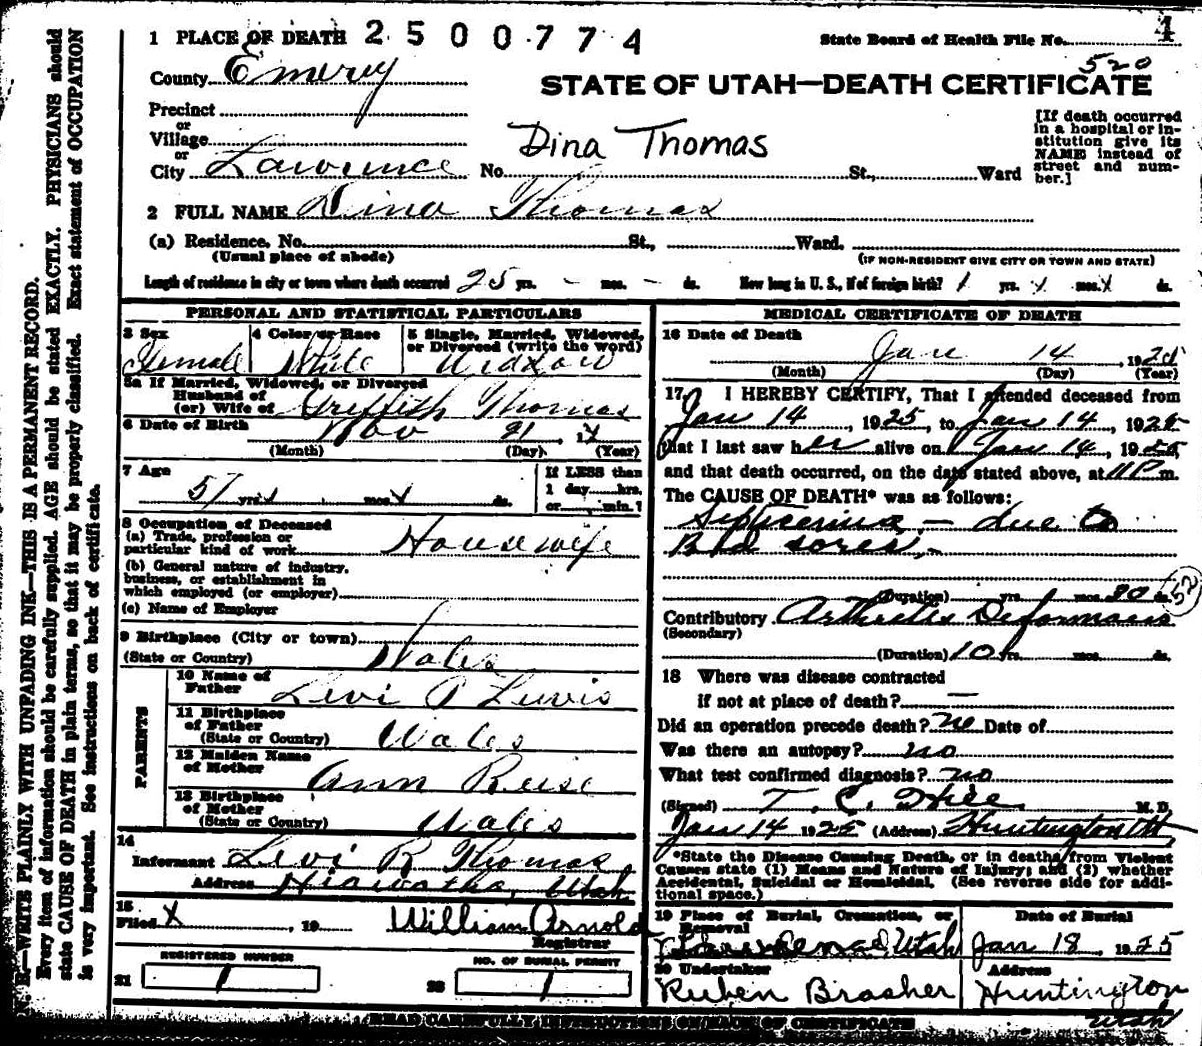 1 PLACE OF DEATH 2500774
State Board of Health File No. 4
520
County Emery
STATE OF UTAH—DEATH CERTIFICATE
Precinct
or
Village
or
City Lawrence No. St., Ward
Dina Thomas
[If death occurred
in a hospital or in-
stitution give its
NAME instead of
street and num-
ber.]
2 FULL NAME Dina Thomas
(a) Residence. No. St., Ward.
(Usual place of abode)
(IF NON-RESIDENT GIVE CITY OR TOWN AND STATE)
Length of residence in city or town where death occurred 25 yrs. - mos. - ds. How long in U. S., if of foreign birth? yrs. x mos. x ds.
PERSONAL AND STATISTICAL PARTICULARS
3 Sex
Female
4 Color or Race
White
5 Single, Married, Widowed,
or Divorced (write the word)
Widdow
5a If Married, Widowed, or Divorced
Husband of
(or) Wife of Griffith Thomas
6 Date of Birth Nov 21
(Month) (Day) (Year)
7 Age
57 yrs. x mos. x ds.
If LESS than
1 day hrs.
or min.?
8 Occupation of Deceased
(a) Trade, profession or
particular kind of work Housewife
(b) General nature of industry,
business, or establishment in
which employed (or employer)
(c) Name of Employer
9 Birthplace (City or town)
(State or Country) Wales
PARENTS
10 Name of
Father Levi P Lewis
11 Birthplace
of Father
(State or Country) Wales
12 Maiden Name
of Mother Ann Reese
13 Birthplace
of Mother
(State or Country) Wales
14
Informant Levi R Thomas
Address Hiawatha, Utah
15
Filed X, 19 William Arnold
Registrar
REGISTERED NUMBER
21 1
NO. OF BURIAL PERMIT
22 1
MEDICAL CERTIFICATE OF DEATH
16 Date of Death
Jan 14, 1925
(Month) (Day) (Year)
17 I HEREBY CERTIFY, That I attended deceased from
Jan 14, 1925, to Jan 14, 1925
that I last saw her alive on Jan 14, 1925
and that death occurred, on the date stated above, at 11 P m.
The CAUSE OF DEATH* was as follows:
Septicemia - due to
Bed sores, -
(Duration) yrs. mos. 30 ds.
52
Contributory Arthritis Deformans
(Secondary)
(Duration) 10 yrs. mos. ds.
18 Where was disease contracted
if not at place of death? —
Did an operation precede death? no Date of
Was there an autopsy? no
What test confirmed diagnosis? no
(Signed) T. C. Hill M. D.
Jan 14 1925 (Address) Huntington Ut
*State the Disease Causing Death, or in deaths from Violent
Causes state (1) Means and Nature of Injury; and (2) whether
Accidental, Suicidal or Homicidal. (See reverse side for addi-
tional space.)
19 Place of Burial, Cremation, or
Removal
Utah
Date of Burial
Jan 18, 1925
20 Undertaker
Ruben Brasher
Address
Huntington
Utah
READ CAREFULLY INSTRUCTIONS ON BACK OF CERTIFICATE
N. B.—WRITE PLAINLY WITH UNFADING INK—THIS IS A PERMANENT RECORD.
Every item of information should be carefully supplied. AGE should be stated EXACTLY. PHYSICIANS should
state CAUSE OF DEATH in plain terms, so that it may be properly classified. Exact statement of OCCUPATION
is very important. See instructions on back of certificate.